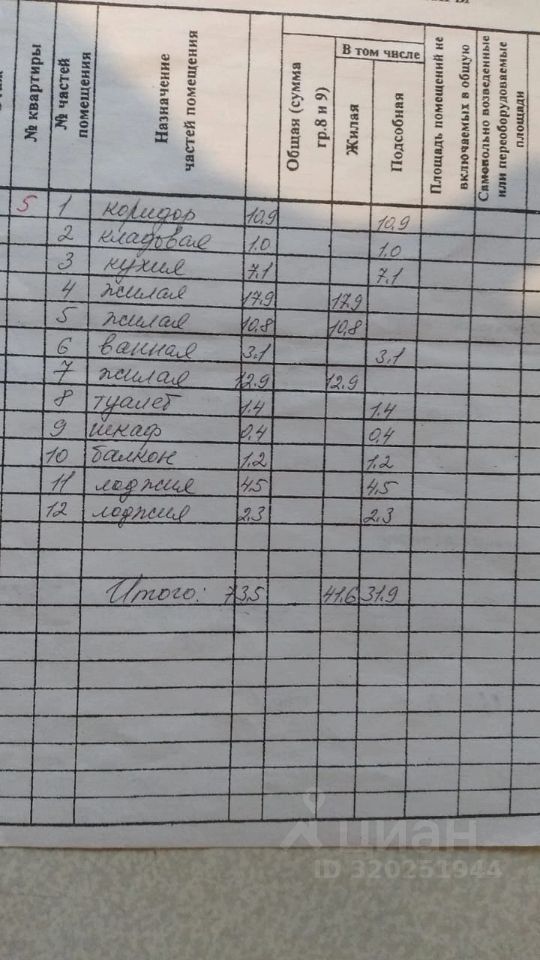 № квартиры
№ частей помещения
Назначение частей помещения
Общая (сумма гр.8 и 9)
В том числе
Жилая
Подсобная
Площадь помещений не включаемых в общую
Самовольно возведенные или переоборудоваемые площади
5 1 коридор 10,9 10,9
2 кладовая 1.0 1.0
3 кухня 7,1 7,1
4 жилая 17,9 17,9
5 жилая 10,8 10,8
6 ванная 3,1 3,1
7 жилая 12,9 12,9
8 туалет 1.4 1.4
9 шкаф 0,4 0,4
10 балкон 1,2 1,2
11 лоджия 4,5 4,5
12 лоджия 2,3 2,3
Итого: 73,5 41,6 31,9
циан
ID 320251944